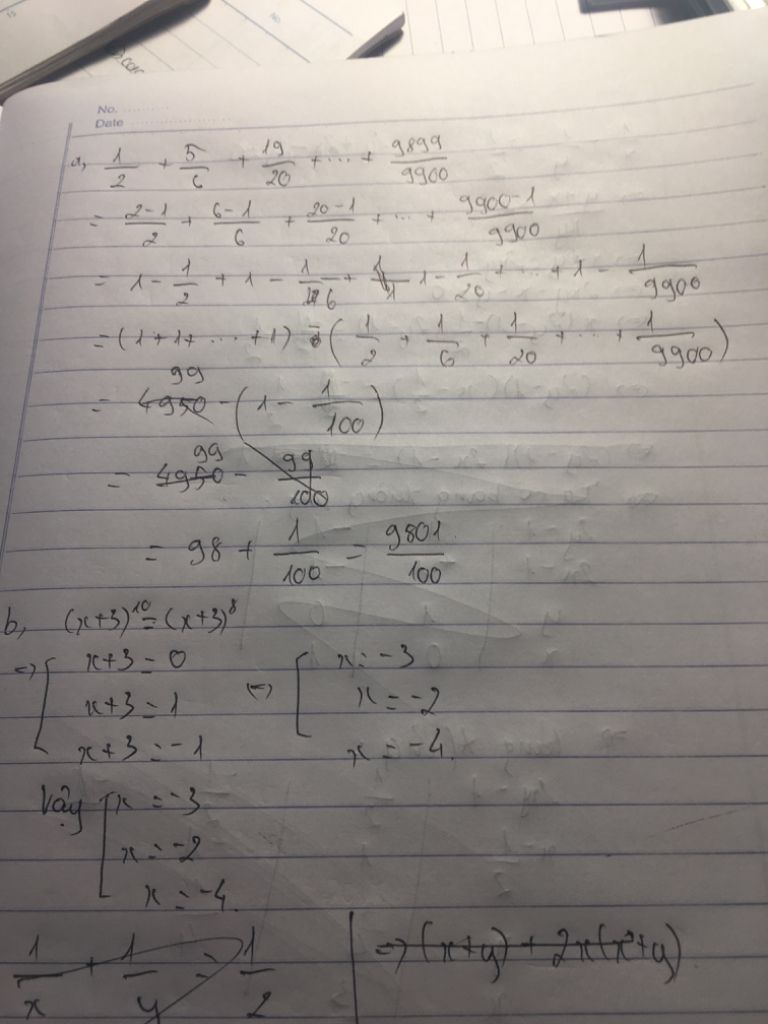 No.
Date
a, 1/2 + 5/6 + 19/20 + ... + 9899/9900
= (2-1)/2 + (6-1)/6 + (20-1)/20 + ... + (9900-1)/9900
= 1 - 1/2 + 1 - 1/6 + 1 - 1/20 + ... + 1 - 1/9900
= (1+1+ ... +1) - (1/2 + 1/6 + 1/20 + ... + 1/9900)
= 99 - (1 - 1/100)
= 99 - 99/100
= 98 + 1/100 = 9801/100
b, (x+3)^10 = (x+3)^8
=> [ x+3 = 0 <=> [ x = -3
x+3 = 1 x = -2
x+3 = -1 x = -4.
Vậy [ x = -3
x = -2
x = -4.
1/x + 1/y = 1/2 => (x+y) + 2x(x²+y)